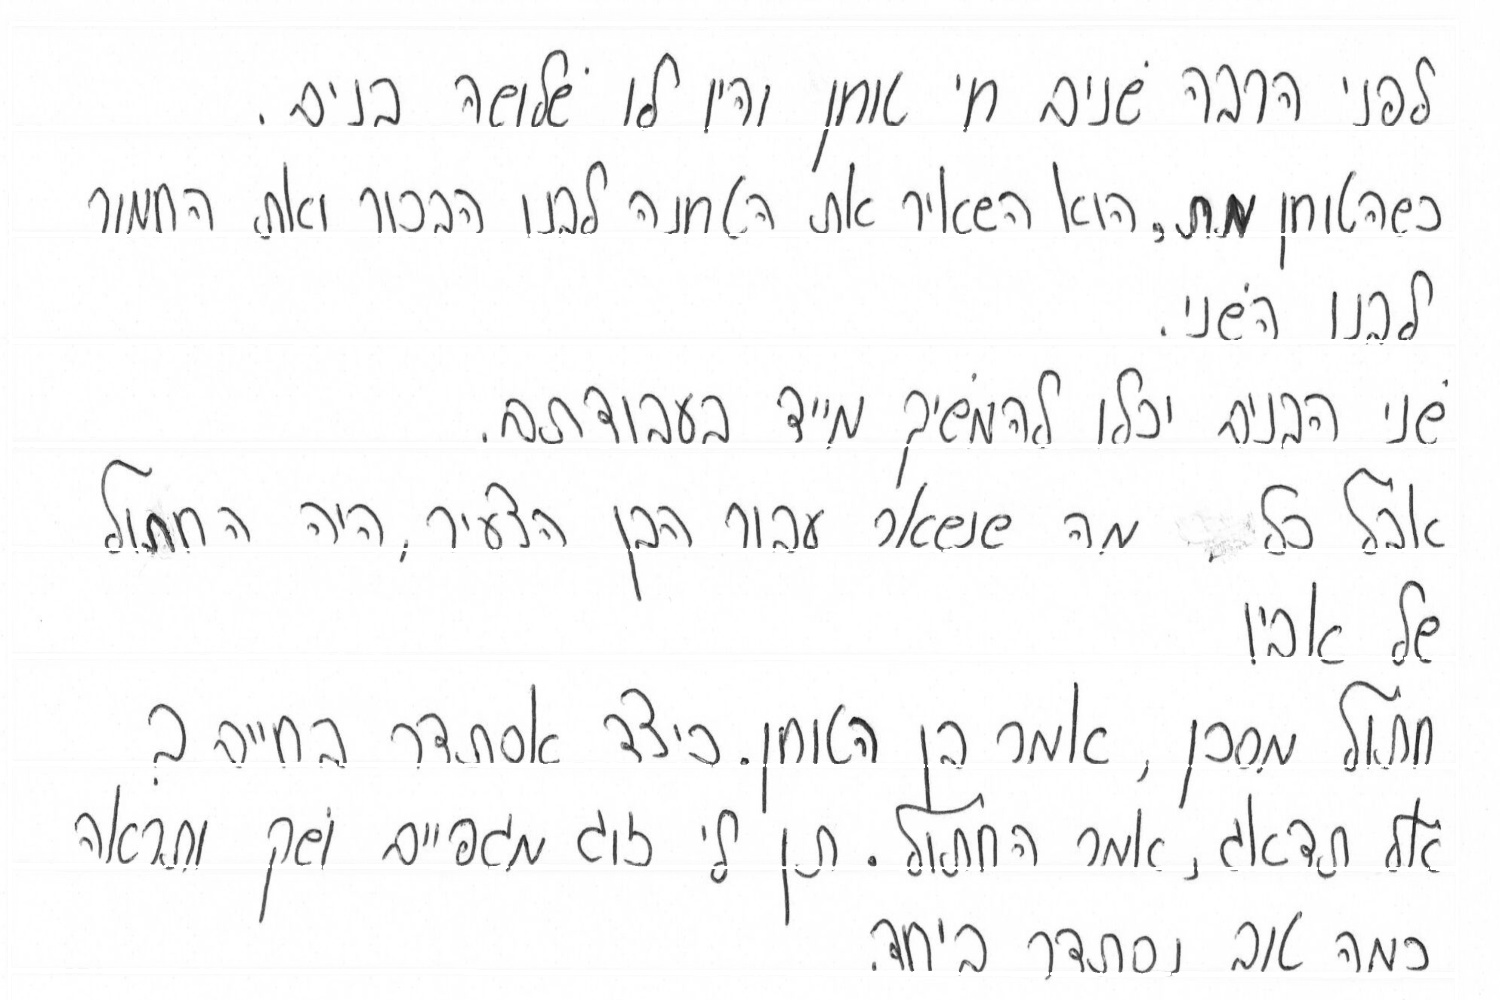 לפני הרבה שנים חי טוחן והיו לו שלושה בנים.
כשהטוחן מת, הוא השאיר את הטחנה לבנו הבכור ואת החמור
לבנו השני.
שני הבנים יכלו להמשיך מייד בעבודתם.
אבל כל מה שנשאר עבור הבן הצעיר, היה החתול
של אביו
חתול מסכן, אמר בן הטוחן. כיצד אסתדר בחיים ?
אל תדאג, אמר החתול. תן לי זוג מגפיים ושק ותראה
כמה טוב נסתדר ביחד.